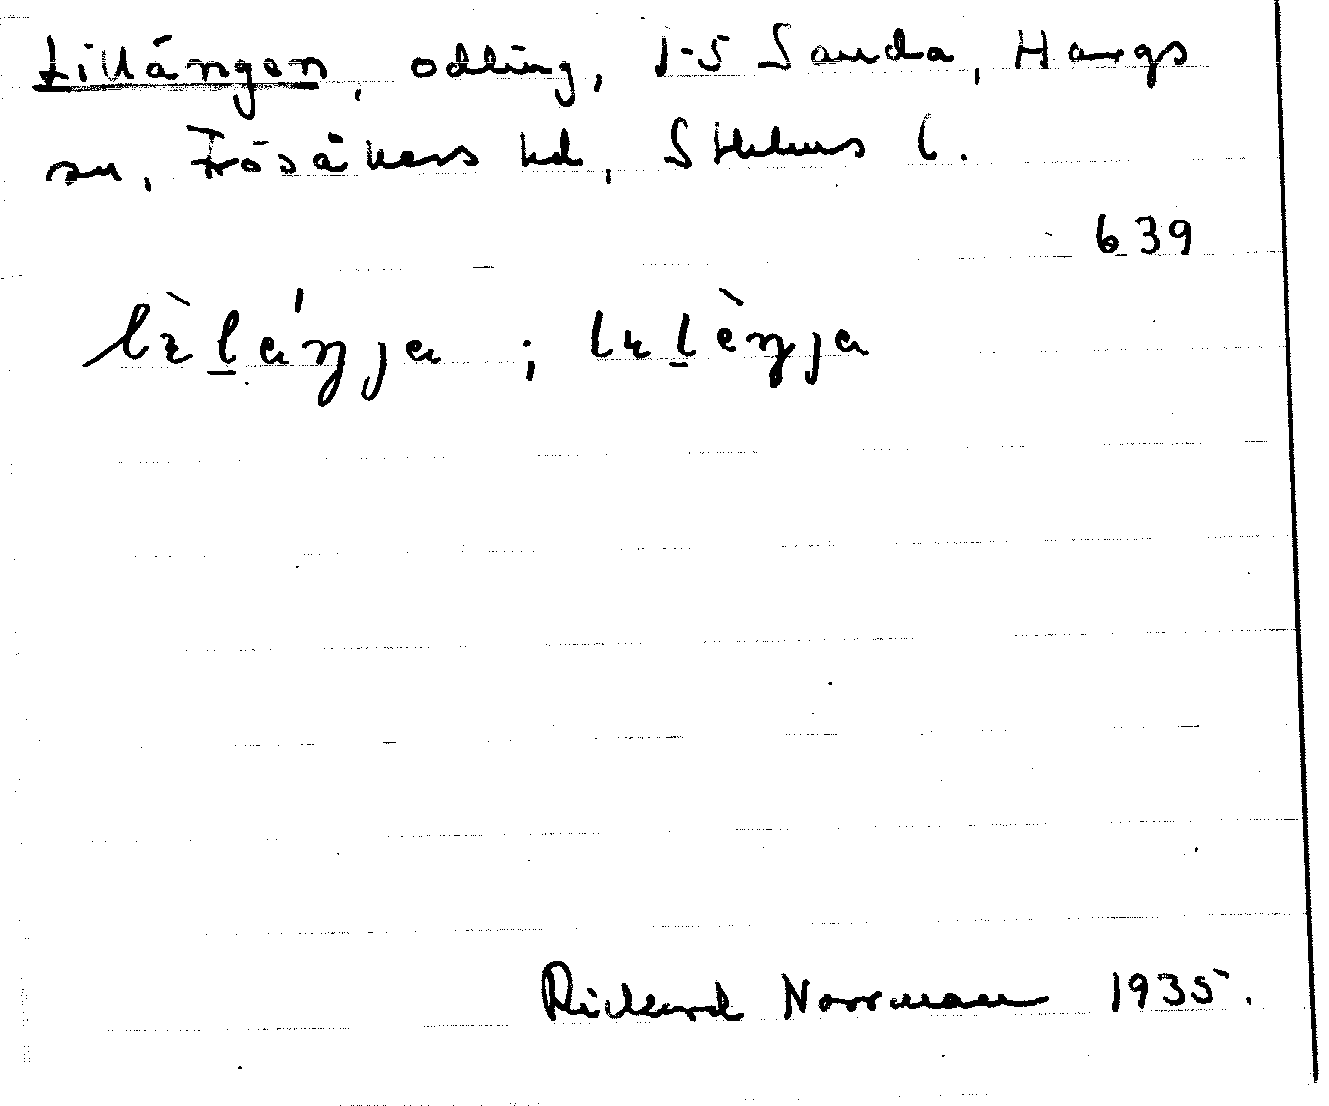 Lillängen, odling, 1-5 Sanda, Hargs
sn, Frösåkers hd, Sthlms l.
639
lìláŋja ; lɩlàŋja
Rickard Norrman 1935.